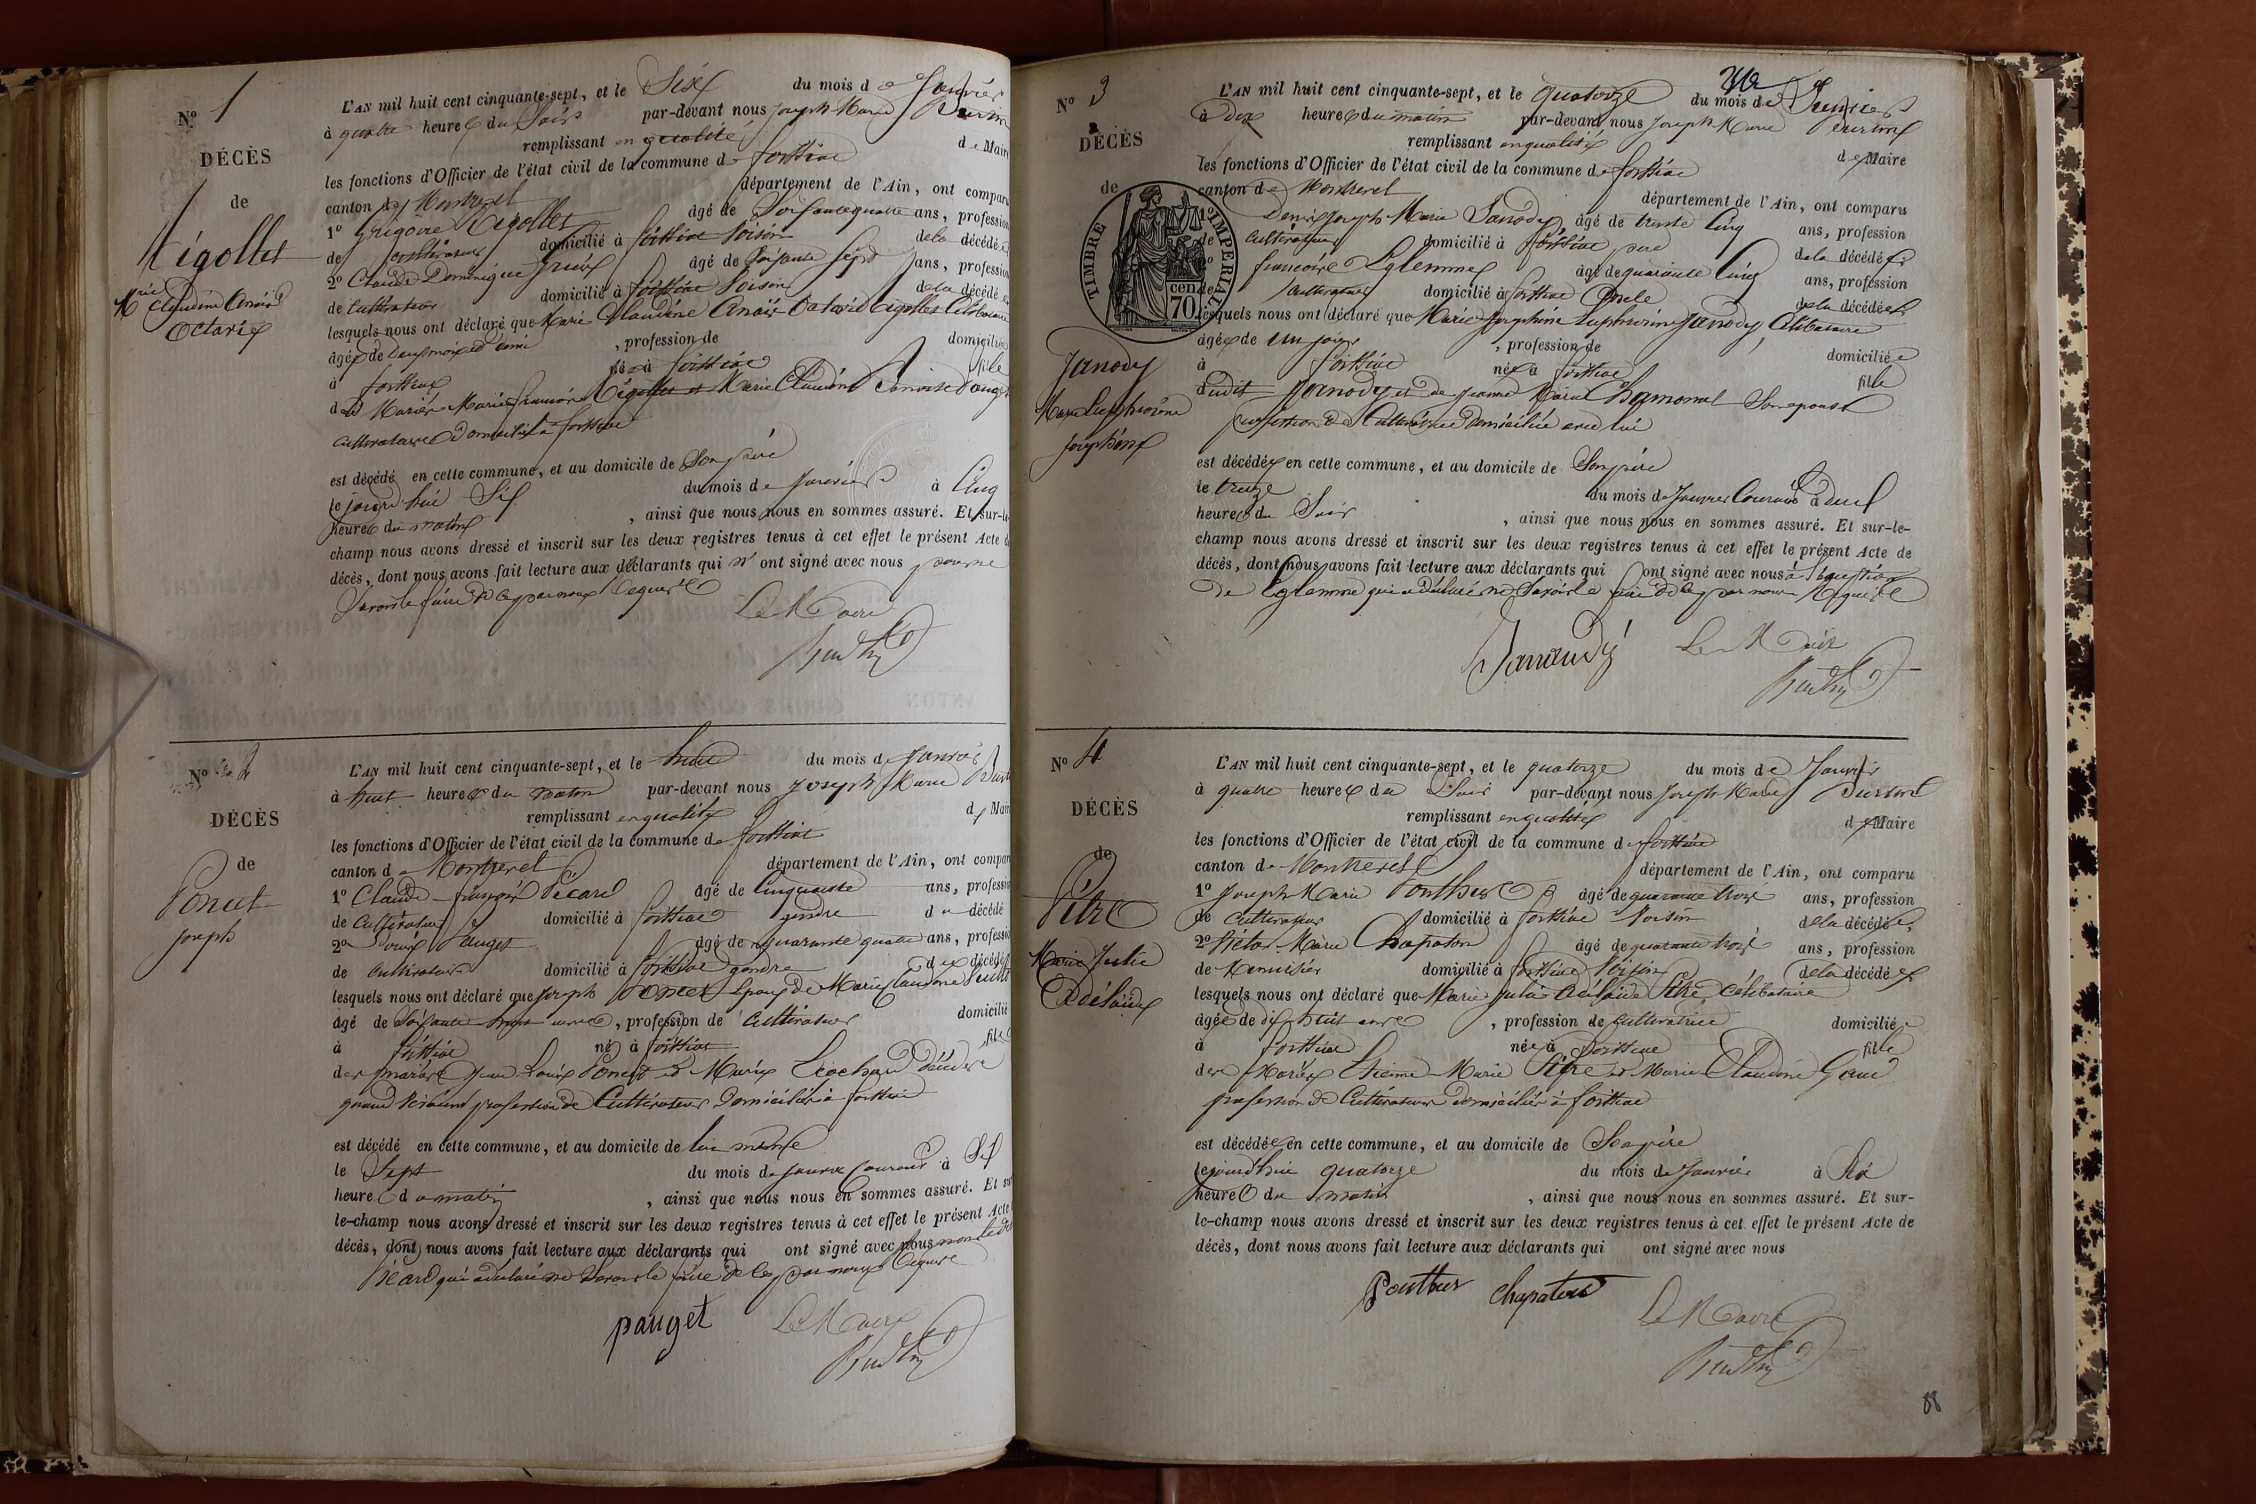 N° 1
DÉCÈS
de
Rigollet
Mrie Claudine
Octavie
L'AN mil huit cent cinquante-sept, et le Six du mois de Janvier
à quatre heures du Soir par-devant nous Joseph Marie
remplissant en qualité de Maire
les fonctions d'Officier de l'état civil de la commune de foissiat
canton de Montrevel département de l'Ain, ont comparu
1° Grégoire Rigollet âgé de Soixante quatre ans, profession
de cultivateur domicilié à foissiat voisin de la décédée
2° Claude Dominique âgé de Soixante Sept ans, profession
de cultivateur domicilié à foissiat voisin de la décédée
lesquels nous ont déclaré que Marie Claudine Octavie Rigollet Célibataire
âgée de deux mois et demi , profession de domiciliée
à foissiat née à foissiat fille
des Mariés Marie françois Rigollet et Marie Claudine
cultivateurs domiciliés à foissiat
est décédé en cette commune, et au domicile de Son père
le jourd'hui Six du mois de Janvier à Cinq
heures du matin , ainsi que nous nous en sommes assuré. Et sur-le-
champ nous avons dressé et inscrit sur les deux registres tenus à cet effet le présent Acte de
décès, dont nous avons fait lecture aux déclarants qui n' ont signé avec nous pour ne
Savoir le faire de ce par nous Requis
Le Maire
N° 2
DÉCÈS
de
Poncet
Joseph
L'AN mil huit cent cinquante-sept, et le huit du mois de Janvier
à huit heures du matin par-devant nous Joseph Marie
remplissant en qualité de Maire
les fonctions d'Officier de l'état civil de la commune de foissiat
canton de Montrevel département de l'Ain, ont comparu
1° Claude françois Picard âgé de Cinquante ans, profession
de Cultivateur domicilié à foissiat gendre du décédé
2° Pauget âgé de quarante quatre ans, profession
de cultivateur domicilié à foissiat gendre du décédé
lesquels nous ont déclaré que Joseph Poncet époux de Marie Claudine
âgé de Soixante ans , profession de Cultivateur domicilié
à foissiat né à foissiat fils
des mariés Jean Louis Poncet et Marie décédés
quand vivaient profession de Cultivateurs domiciliés à foissiat
est décédé en cette commune, et au domicile de lui même
le Sept du mois de Janvier Courant à Six
heures du matin , ainsi que nous nous en sommes assuré. Et sur-
le-champ nous avons dressé et inscrit sur les deux registres tenus à cet effet le présent Acte
décès, dont nous avons fait lecture aux déclarants qui ont signé avec nous non ledit
Picard qui a déclaré ne Savoir le faire de ce par nous Requis
pauget Le Maire
N° 3
DÉCÈS
de
TIMBRE IMPERIAL
70 cen
Janody
Marie Euphrosine
Josephine
L'AN mil huit cent cinquante-sept, et le quatorze du mois de Janvier
à dix heures du matin par-devant nous Joseph Marie
remplissant en qualité de Maire
les fonctions d'Officier de l'état civil de la commune de foissiat
canton de Montrevel département de l'Ain, ont comparu
1° Denis Joseph Marie Janody âgé de trente Cinq ans, profession
de Cultivateur domicilié à foissiat père de la décédée
2° françois Eglemme âgé de quarante Cinq ans, profession
de cultivateur domicilié à foissiat Oncle de la décédée
lesquels nous ont déclaré que Marie Josephine Euphrosine Janody Célibataire
âgée de un jour , profession de domiciliée
à foissiat née à foissiat fille
dudit Janody et de Jeanne Marie Son épouse
profession de Cultivatrice domiciliée avec lui
est décédée en cette commune, et au domicile de Son père
le treize du mois de Janvier Courant à deux
heures du Soir , ainsi que nous nous en sommes assuré. Et sur-le-
champ nous avons dressé et inscrit sur les deux registres tenus à cet effet le présent Acte de
décès, dont nous avons fait lecture aux déclarants qui ont signé avec nous à l'exception
de Eglemme qui a déclaré ne Savoir le faire de ce par nous Requis
Janaudy Le Maire
N° 4
DÉCÈS
de
Pitre
Marie Julie
Adélaïde
L'AN mil huit cent cinquante-sept, et le quatorze du mois de Janvier
à quatre heures du Soir par-devant nous Joseph Marie
remplissant en qualité de Maire
les fonctions d'Officier de l'état civil de la commune de foissiat
canton de Montrevel département de l'Ain, ont comparu
1° Joseph Marie Ponthus âgé de quarante trois ans, profession
de Cultivateur domicilié à foissiat voisin de la décédée
2° Victor Marie Chapaton âgé de quarante trois ans, profession
de Menuisier domicilié à foissiat voisin de la décédée
lesquels nous ont déclaré que Marie Julie Adélaïde Pitre Célibataire
âgée de dix huit ans , profession de cultivatrice domiciliée
à foissiat née à foissiat fille
des Mariés Etienne Marie Pitre et Marie Claudine
profession de Cultivateurs domiciliés à foissiat
est décédée en cette commune, et au domicile de Son père
le jourd'hui quatorze du mois de Janvier à Six
heures du matin , ainsi que nous nous en sommes assuré. Et sur-
le-champ nous avons dressé et inscrit sur les deux registres tenus à cet effet le présent Acte de
décès, dont nous avons fait lecture aux déclarants qui ont signé avec nous
Ponthus Chapaton Le Maire
88